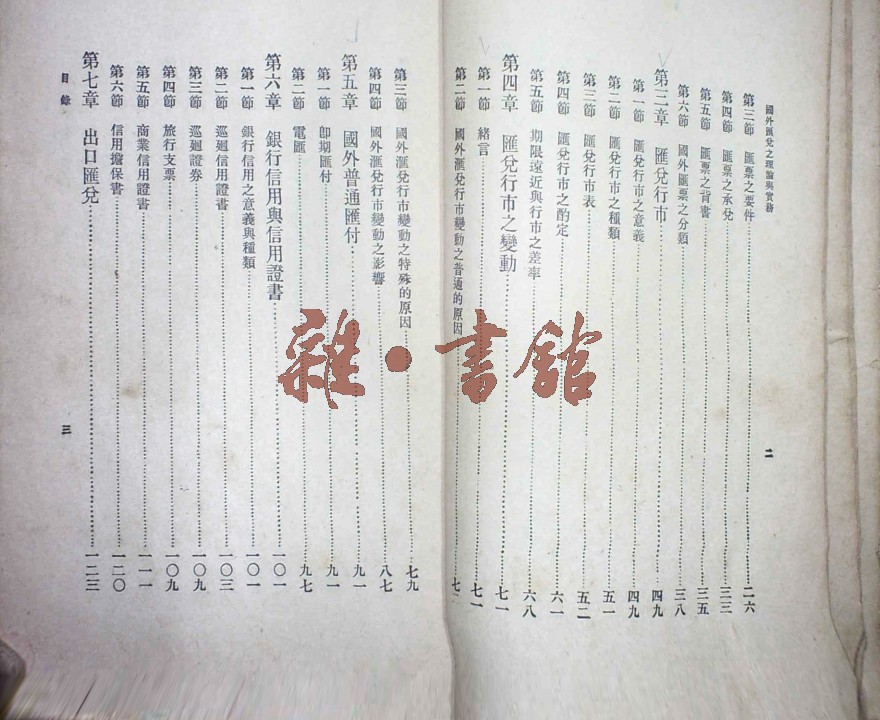 國外匯兌之理論與實務
二
第三節 匯票之要件 二六
第四節 匯票之承兌 三三
第五節 匯票之背書 三五
第六節 國外匯票之分類 三八
第三章 匯兌行市 四九
第一節 匯兌行市之意義 四九
第二節 匯兌行市之種類 五一
第三節 匯兌行市表 五二
第四節 匯兌行市之酌定 六一
第五節 期限遠近與行市之差率 六八
第四章 匯兌行市之變動 七一
第一節 緒言 七一
第二節 國外滙兌行市變動之普通的原因 七
第三節 國外滙兌行市變動之特殊的原因 七九
第四節 國外滙兌行市變動之影響 八七
第五章 國外普通匯付 九一
第一節 卽期匯付 九一
第二節 電匯 九七
第六章 銀行信用與信用證書 一〇一
第一節 銀行信用之意義與種類 一〇一
第二節 巡廻信用證書 一〇三
第三節 巡廻證券 一〇九
第四節 旅行支票 一〇九
第五節 商業信用證書 一一一
第六節 信用擔保書 一二〇
第七章 出口匯兌 一二三
目錄
三
雜·書館